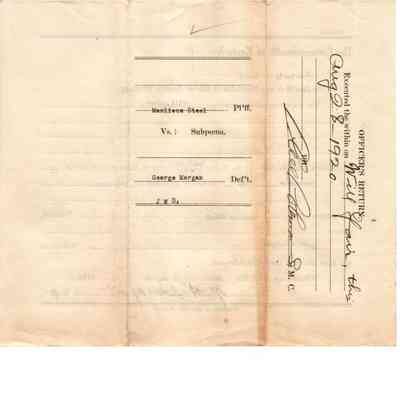 Manliene Steel Pl'ff.
Vs.: Subpoena.
George Morgan Def't.
J M D.
OFFICER'S RETURN.
Executed the within on Will Fair, this
Aug 28-1920
M. C.